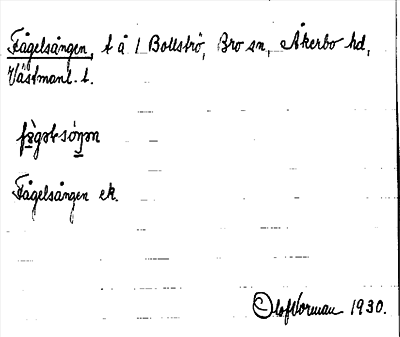 Fågelsången, t å 1 Bollströ, Bro sn, Åkerbo hd,
Västmanl. l.
Fågelsången ek.
Olof Vorman 1930.